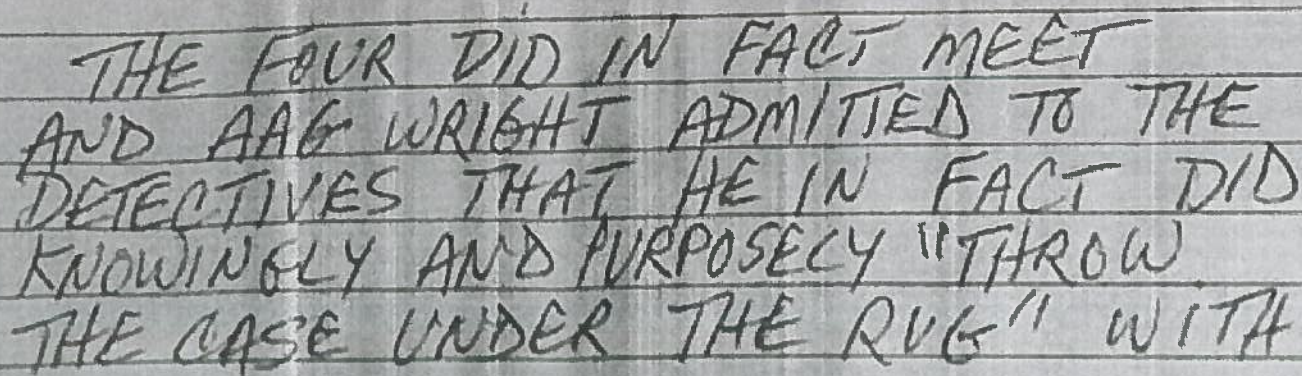 THE FOUR DID IN FACT MEET
AND AAG WRIGHT ADMITTED TO THE
DETECTIVES THAT HE IN FACT DID
KNOWINGLY AND PURPOSELY "THROW
THE CASE UNDER THE RUG" WITH